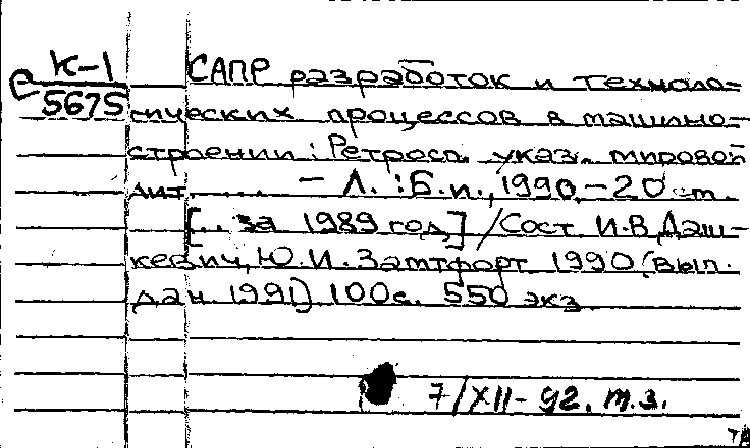 К-1
5675
САПР разработок и техноло-
гических процессов в машино-
строении: Ретросп. указ. мировой
лит. ..... – Л.: Б.и., 1990. – 20 см.
[.. за 1989 год] / Сост. И.В. Даш-
кевич, Ю.И. 1990 (вып.
дан. 1991) 100с. 550 экз.
7/XII-92. т.з.